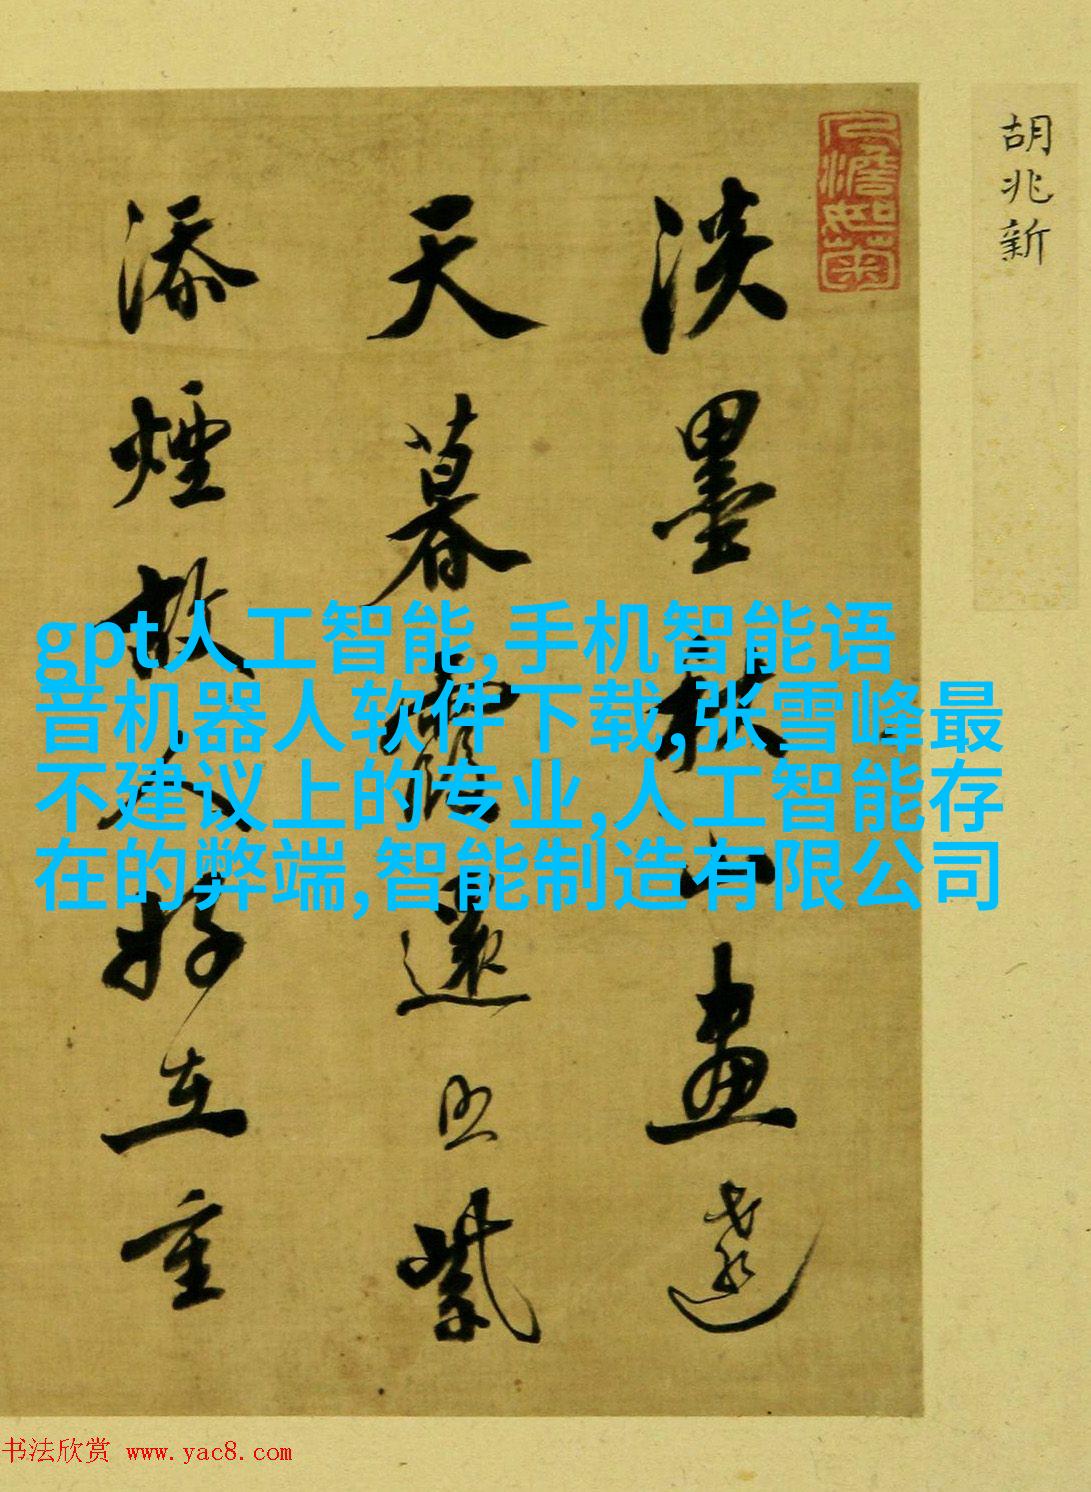 胡兆新
淡墨秋山畫遠
天暮霞還照紫
添煙故人好在重
gpt人工智能,手机智能语
音机器人软件下载,张雪峰最
不建议上的专业,人工智能存
在的弊端,智能制造有限公司
书法欣赏 www.yac8.com